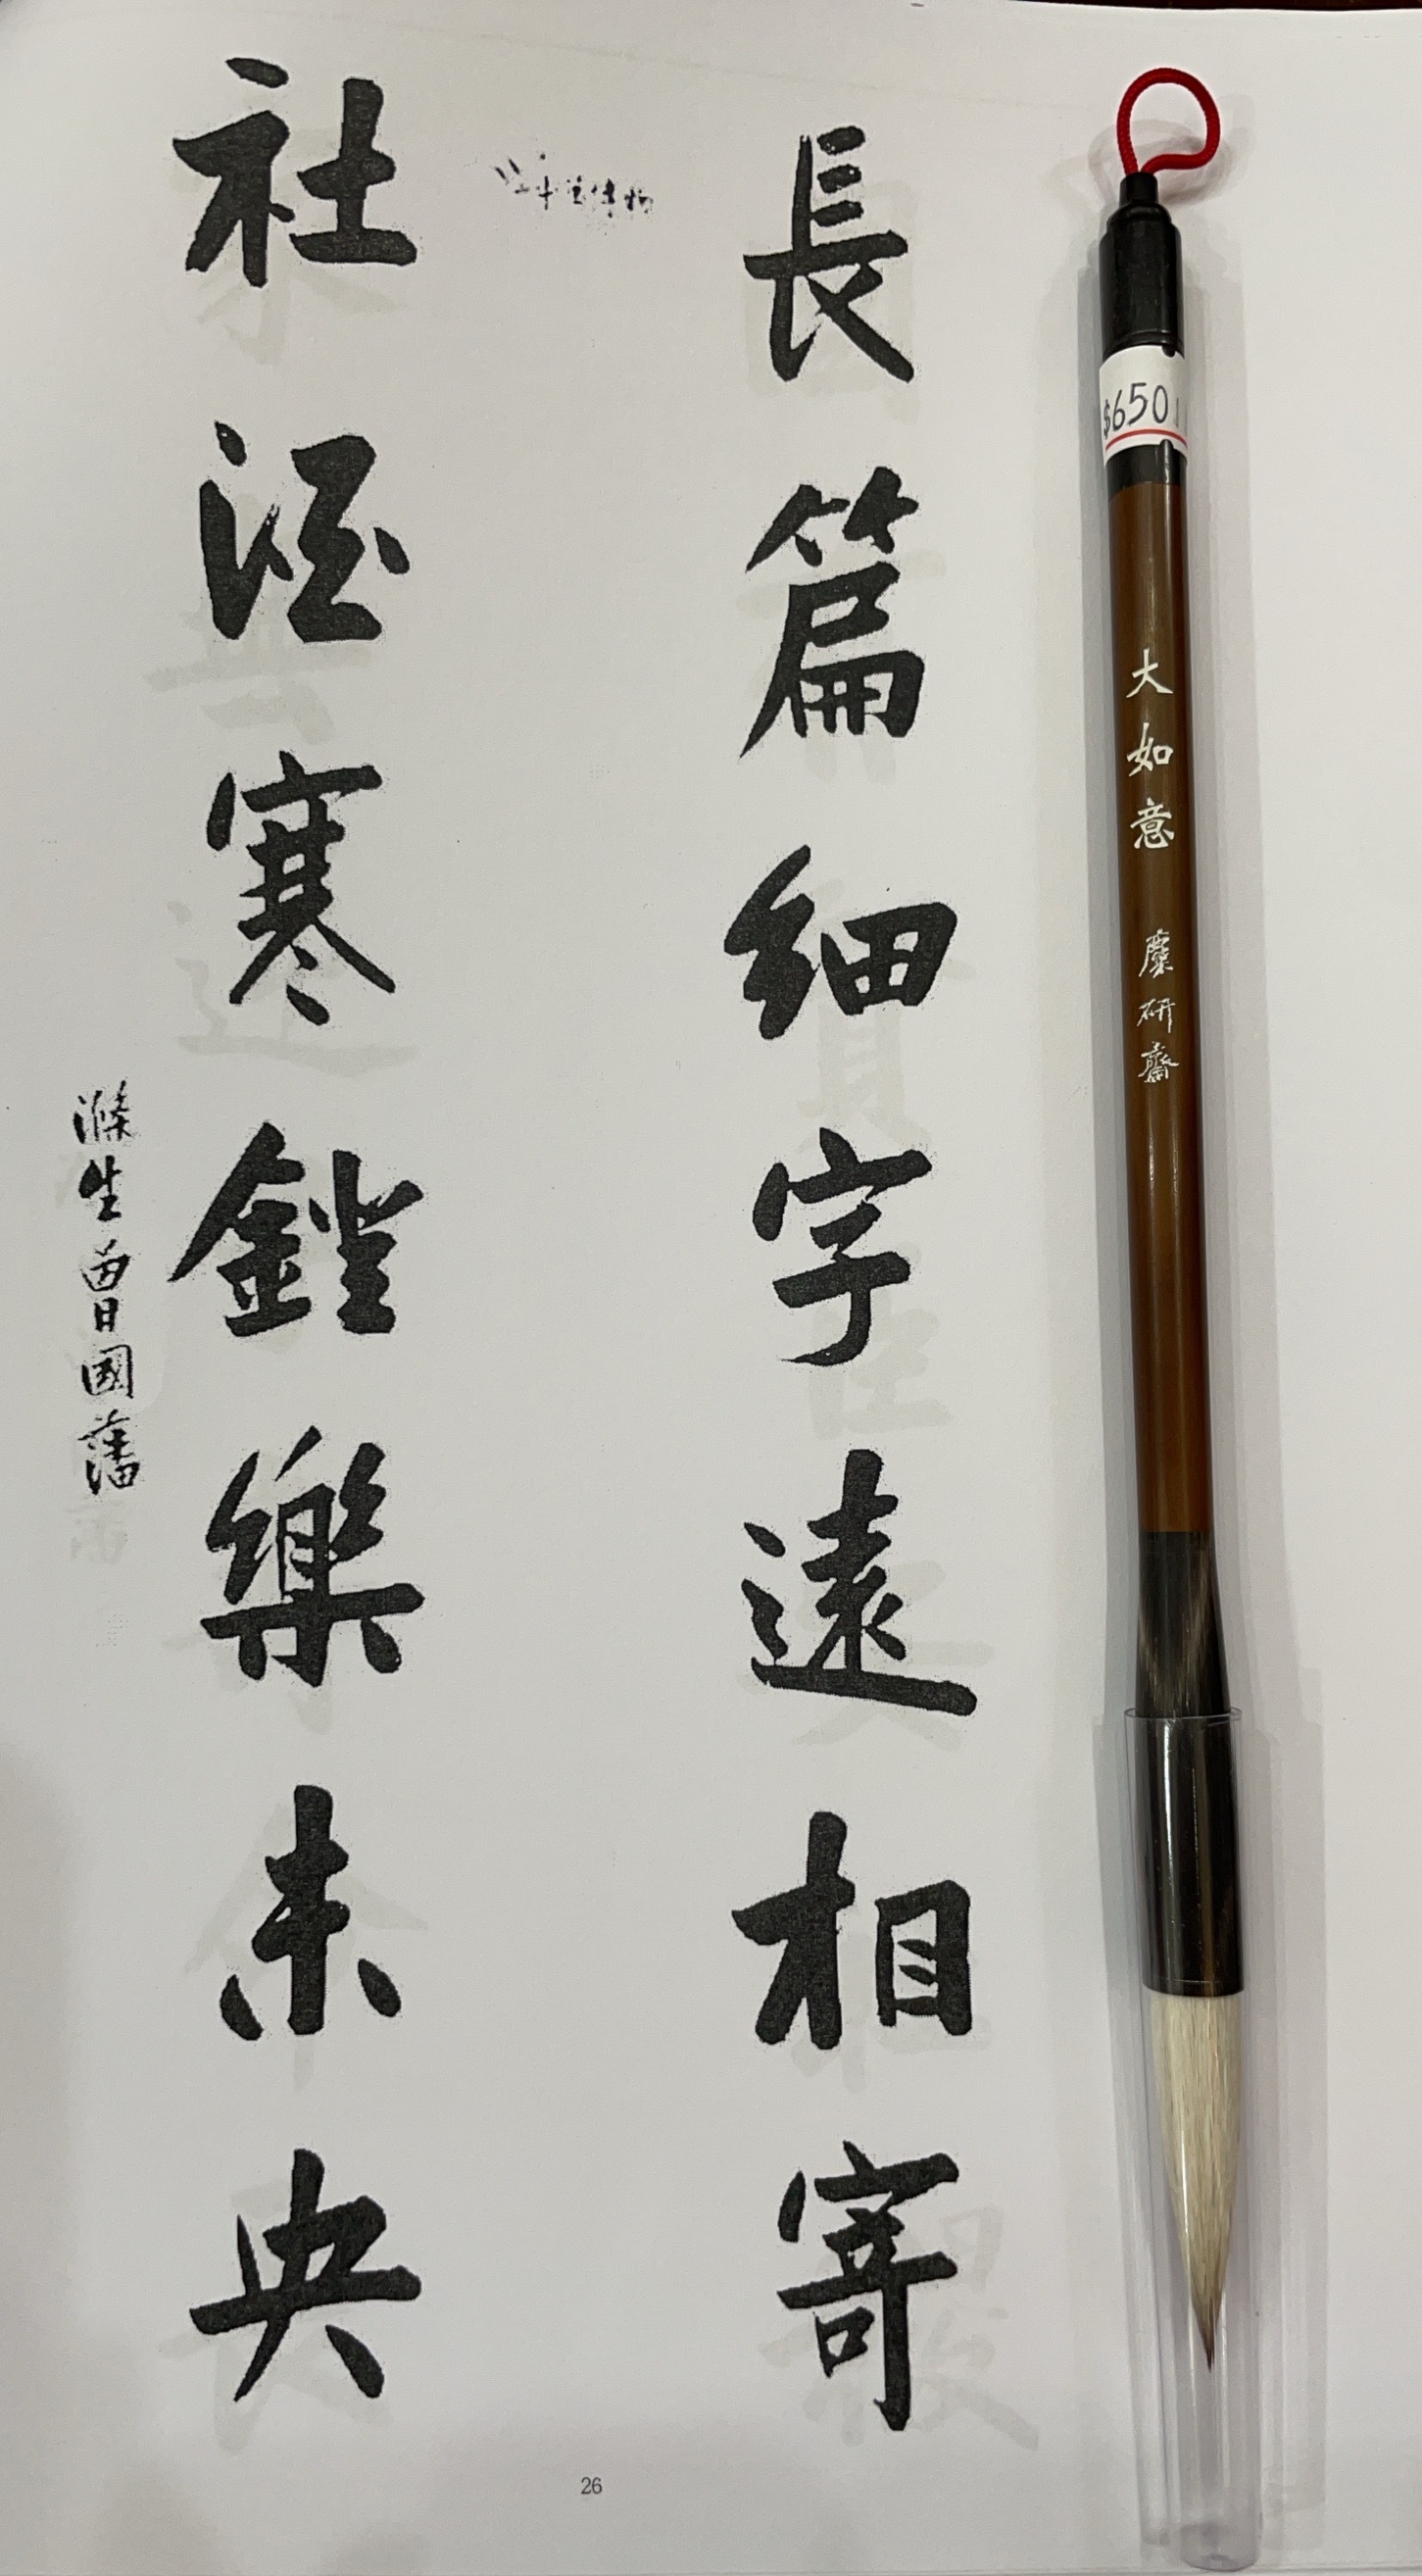 $650
大如意 麋研齋
長篇細字遠相寄
社酒寒鐙樂未央
滌生曾國藩
26